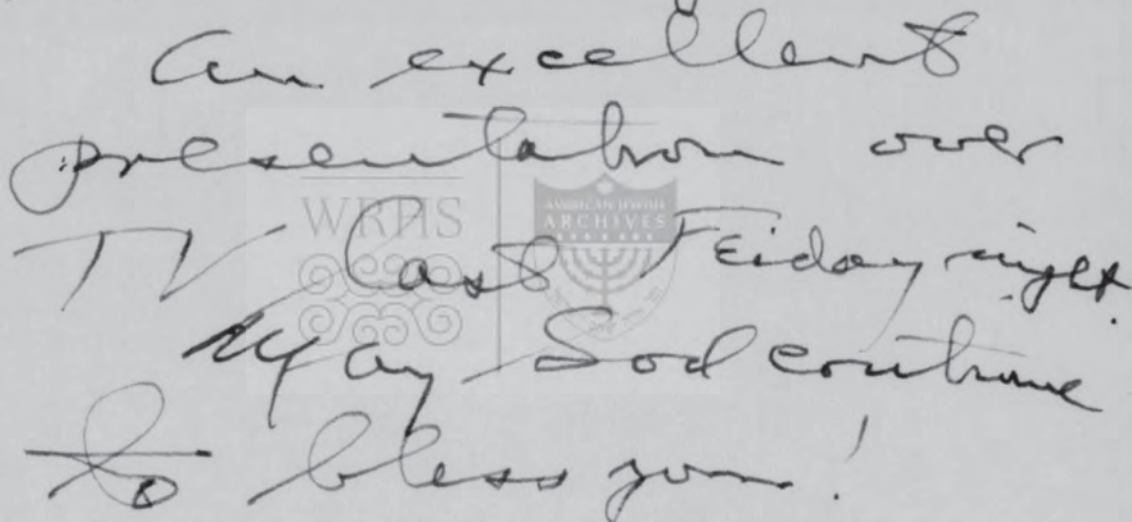 An excellent
presentation over
TV last Friday night.
May God continue
to bless you!
WRHS
AMERICAN JEWISH
ARCHIVES